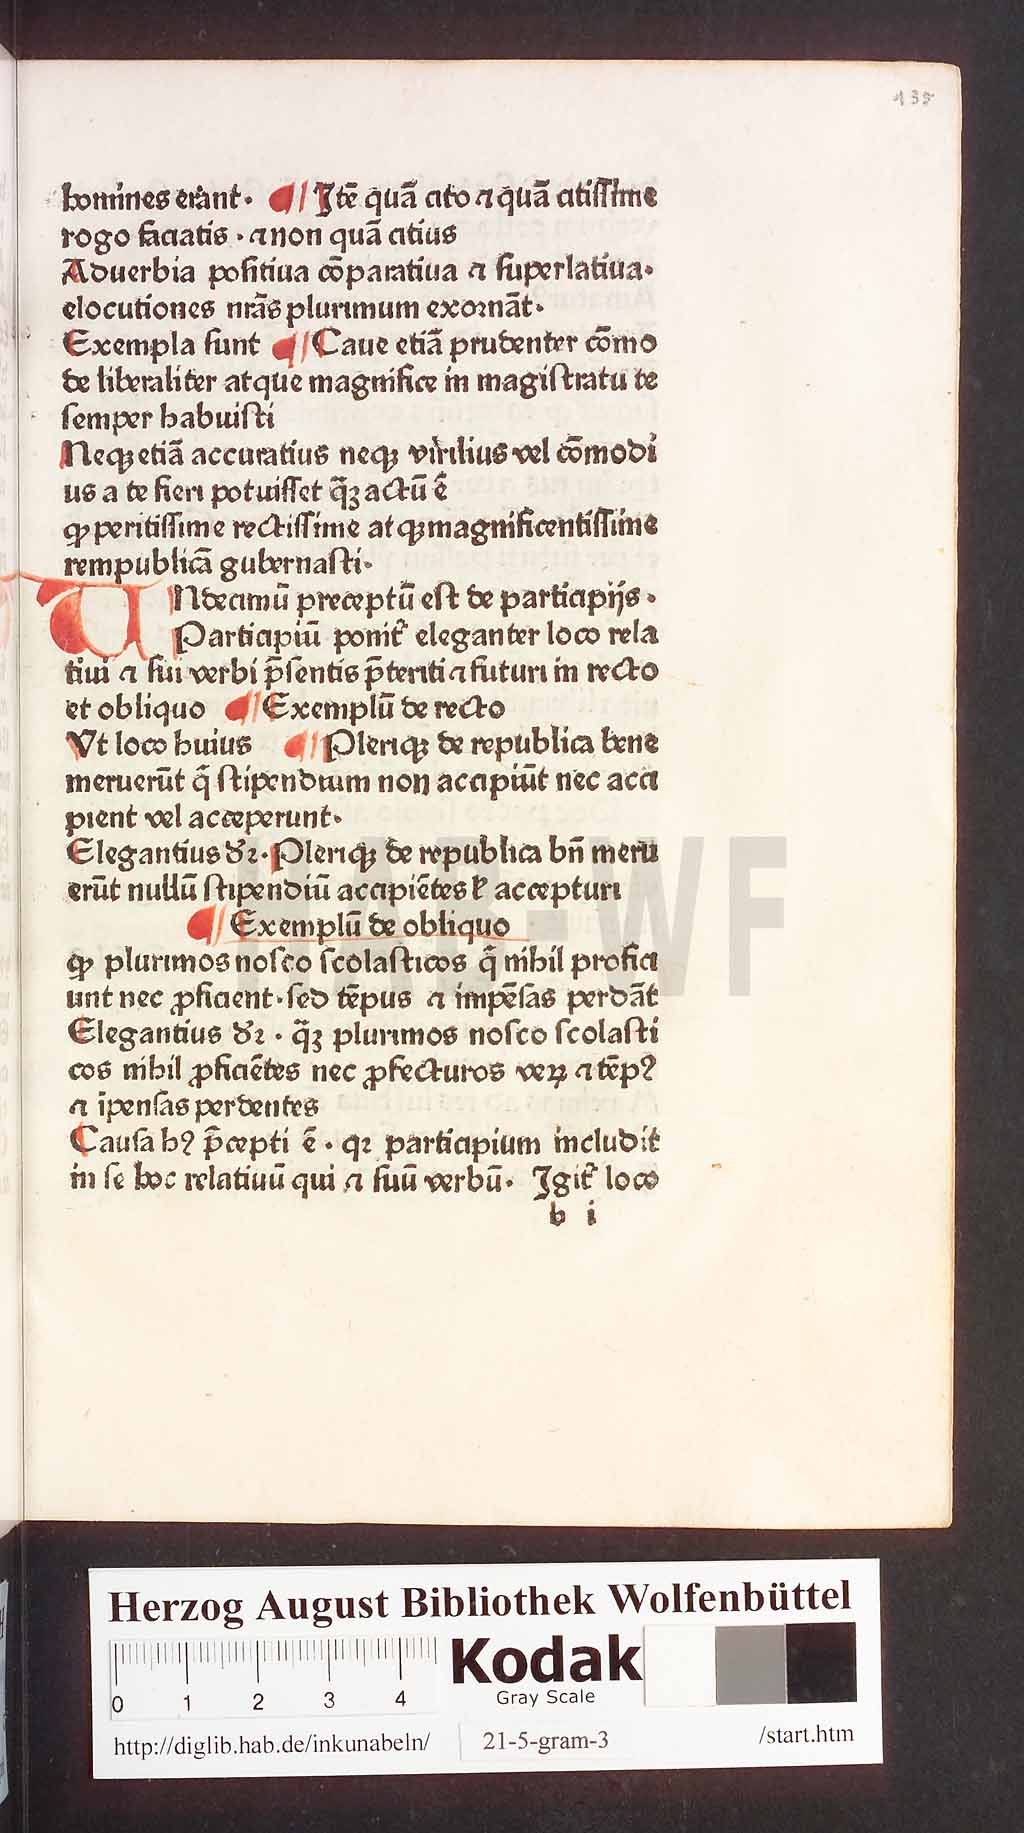 135
homines erant. ¶ Jtē quā cito ⁊ quā citissime
rogo faciatis . ⁊ non quā citius
Aduerbia positiua cōparatiua ⁊ superlatiua.
elocutiones nrās plurimum exornāt.
Exempla sunt ¶ Caue etiā prudenter cōmo
de liberaliter atque magnifice in magistratu te
semper habuisti
Neqꝫ etiā accuratius neqꝫ virilius vel cōmodi
us a te fieri potuisset q̄ꝫ actū ē
ꝙ peritissime rectissime atqꝫ magnificentissime
rempublicā gubernasti.
Undecimū preceptū est de participijs .
Participiū ponit᷑ eleganter loco rela
tiui ⁊ sui verbi p̄sentis p̄teriti ⁊ futuri in recto
et obliquo ¶ Exemplū de recto
Vt loco huius ¶ Pleriqꝫ de republica bene
meruerūt q̄ stipendium non accipiūt nec acci
pient vel acceperunt.
Elegantius dr̄ . Pleriqꝫ de republica bn̄ meru
erūt nullū stipendiū accipiētes ł accepturi
¶ Exemplū de obliquo
ꝙ plurimos nosco scolasticos q̄ nihil profici
unt nec ꝓficient . sed tēpus ⁊ impēsas perdāt
Elegantius dr̄ . q̄ꝫ plurimos nosco scolasti
cos nihil ꝓficiētes nec ꝓfecturos veꝝ ⁊ tēpꝰ
⁊ īpensas perdentes
Causa hꝰ p̄cepti ē . qꝛ participium includit
in se hoc relatiuū qui ⁊ suū verbū. Jgit᷑ loco
b i
HAB-WF
Herzog August Bibliothek Wolfenbüttel
0 1 2 3 4
Kodak
Gray Scale
http://diglib.hab.de/inkunabeln/ 21-5-gram-3 /start.htm